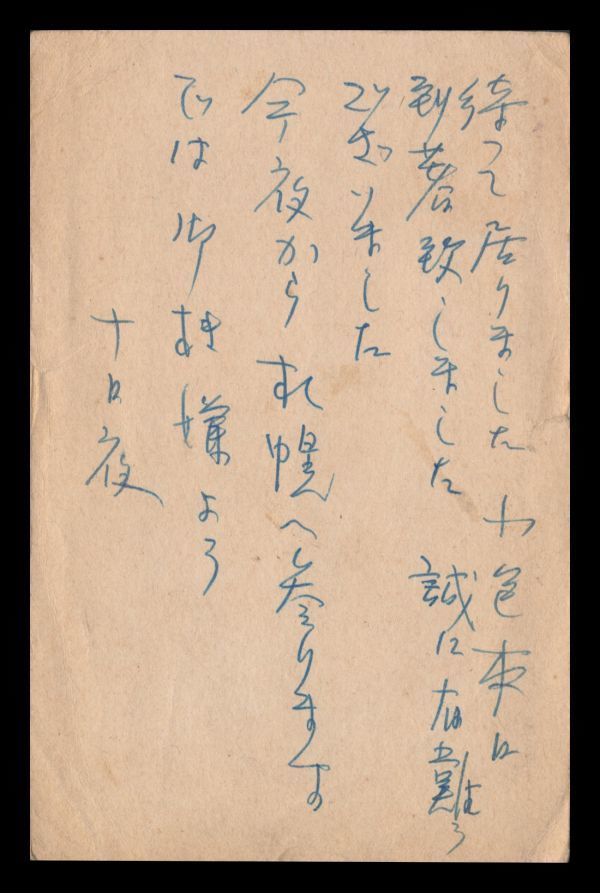 待つて居りました小包本日
到着致しました 誠に有難う
ございました
今夜から札幌へ参ります
では御機嫌よう
十日夜